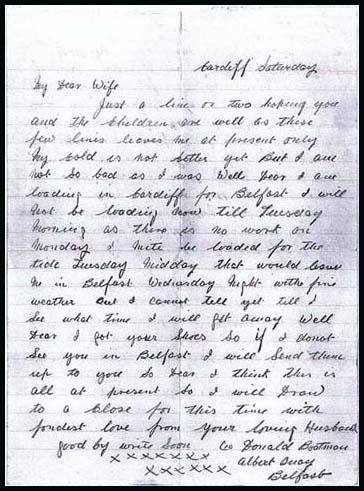 Cardiff Saturday
My Dear Wife
Just a line or two hoping you
and the Children are well as these
few lines leaves me at present only
My Cold is not better yet But I am
not so bad as I was Well Dear I am
loading in Cardiff for Belfast I will
Not be loading Now till Tuesday
Morning as there is no work on
Monday I mite be loaded for the
tide Tuesday Midday that would leave
Me in Belfast Wednesday Night with fine
weather But I cannot tell yet till I
see what time I will get away Well
Dear I got your Shoes So if I donot
See you in Belfast I will Send them
up to you So Dear I think this is
all at present So I will Draw
to a Close for this time with
fondest love from your loving Husband
good by write Soon Co Donald Boatman
x x x x x x x Albert Quay
x x x x x x Belfast